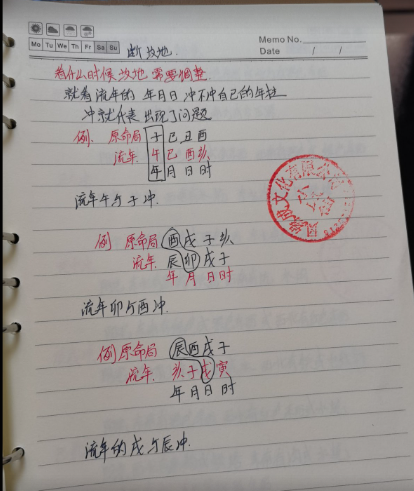 Memo No.
Mo Tu We Th Fr Sa Su
Date / /
断坟地.
看什么时候坟地需要调整
就看流年的 年月日 冲不冲自己的年柱
冲就代表出现了问题
例. 原命局 子巳丑酉
流年. 午巳酉亥
年月日时
流年午与子冲.
例 原命局 酉戌子亥
流年. 辰卯戌子
年月日时
流年卯与酉冲.
例原命局 辰酉戌子
流年. 亥子戌寅
年月日时
流年的戌与辰冲.
文化有限公司